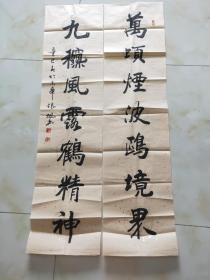 萬頃煙波鷗境界
九穐風露鶴精神